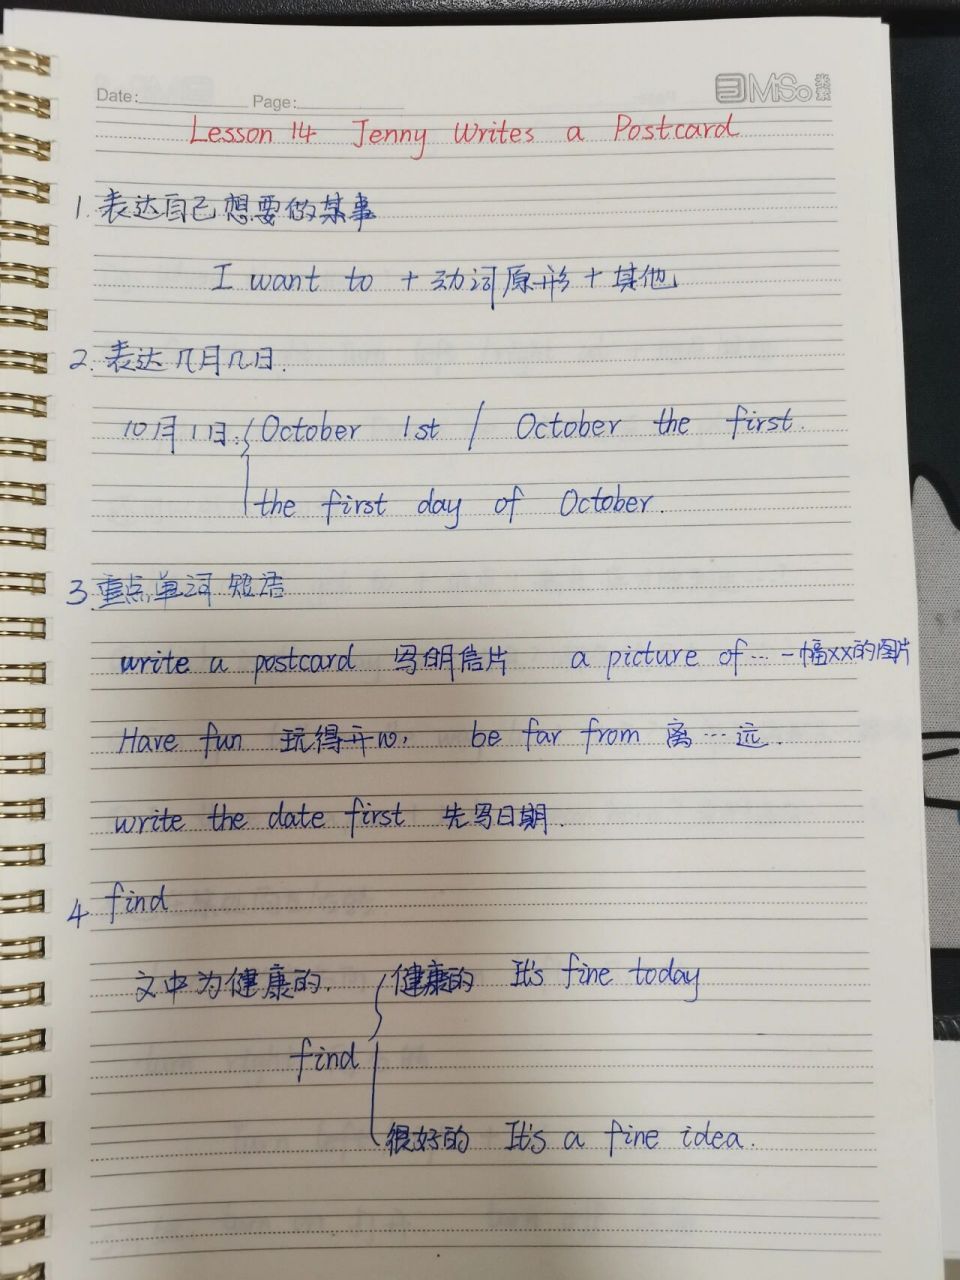 Date: Page: MiSo 米素
Lesson 14 Jenny Writes a Postcard
1. 表达自己想要做某事
I want to + 动词原形 + 其他
2. 表达几月几日.
10月1日: October 1st / October the first.
the first day of October.
3. 重点单词 短语
write a postcard 写明信片 a picture of … 一幅xx的图片
Have fun 玩得开心, be far from 离…远.
write the date first 先写日期.
4 find
文中为健康的. 健康的 It's fine today
find
很好的 It's a fine idea.